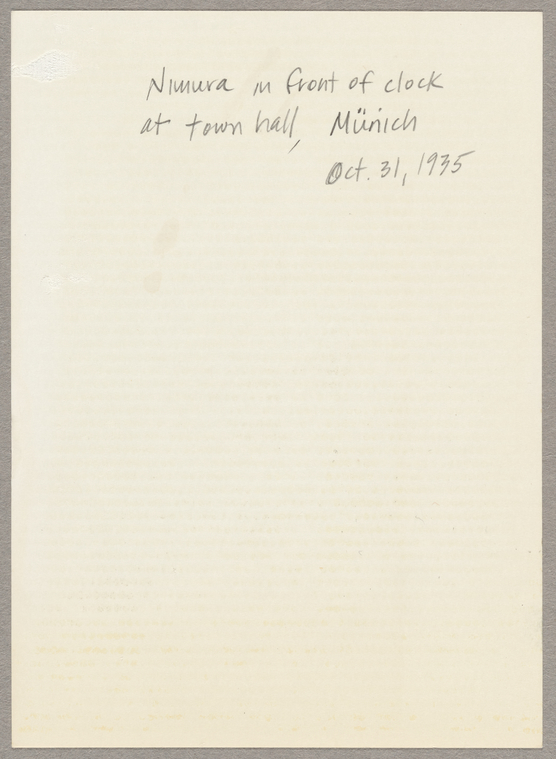 Nimura in front of clock
at town hall, Münich
Oct. 31, 1935